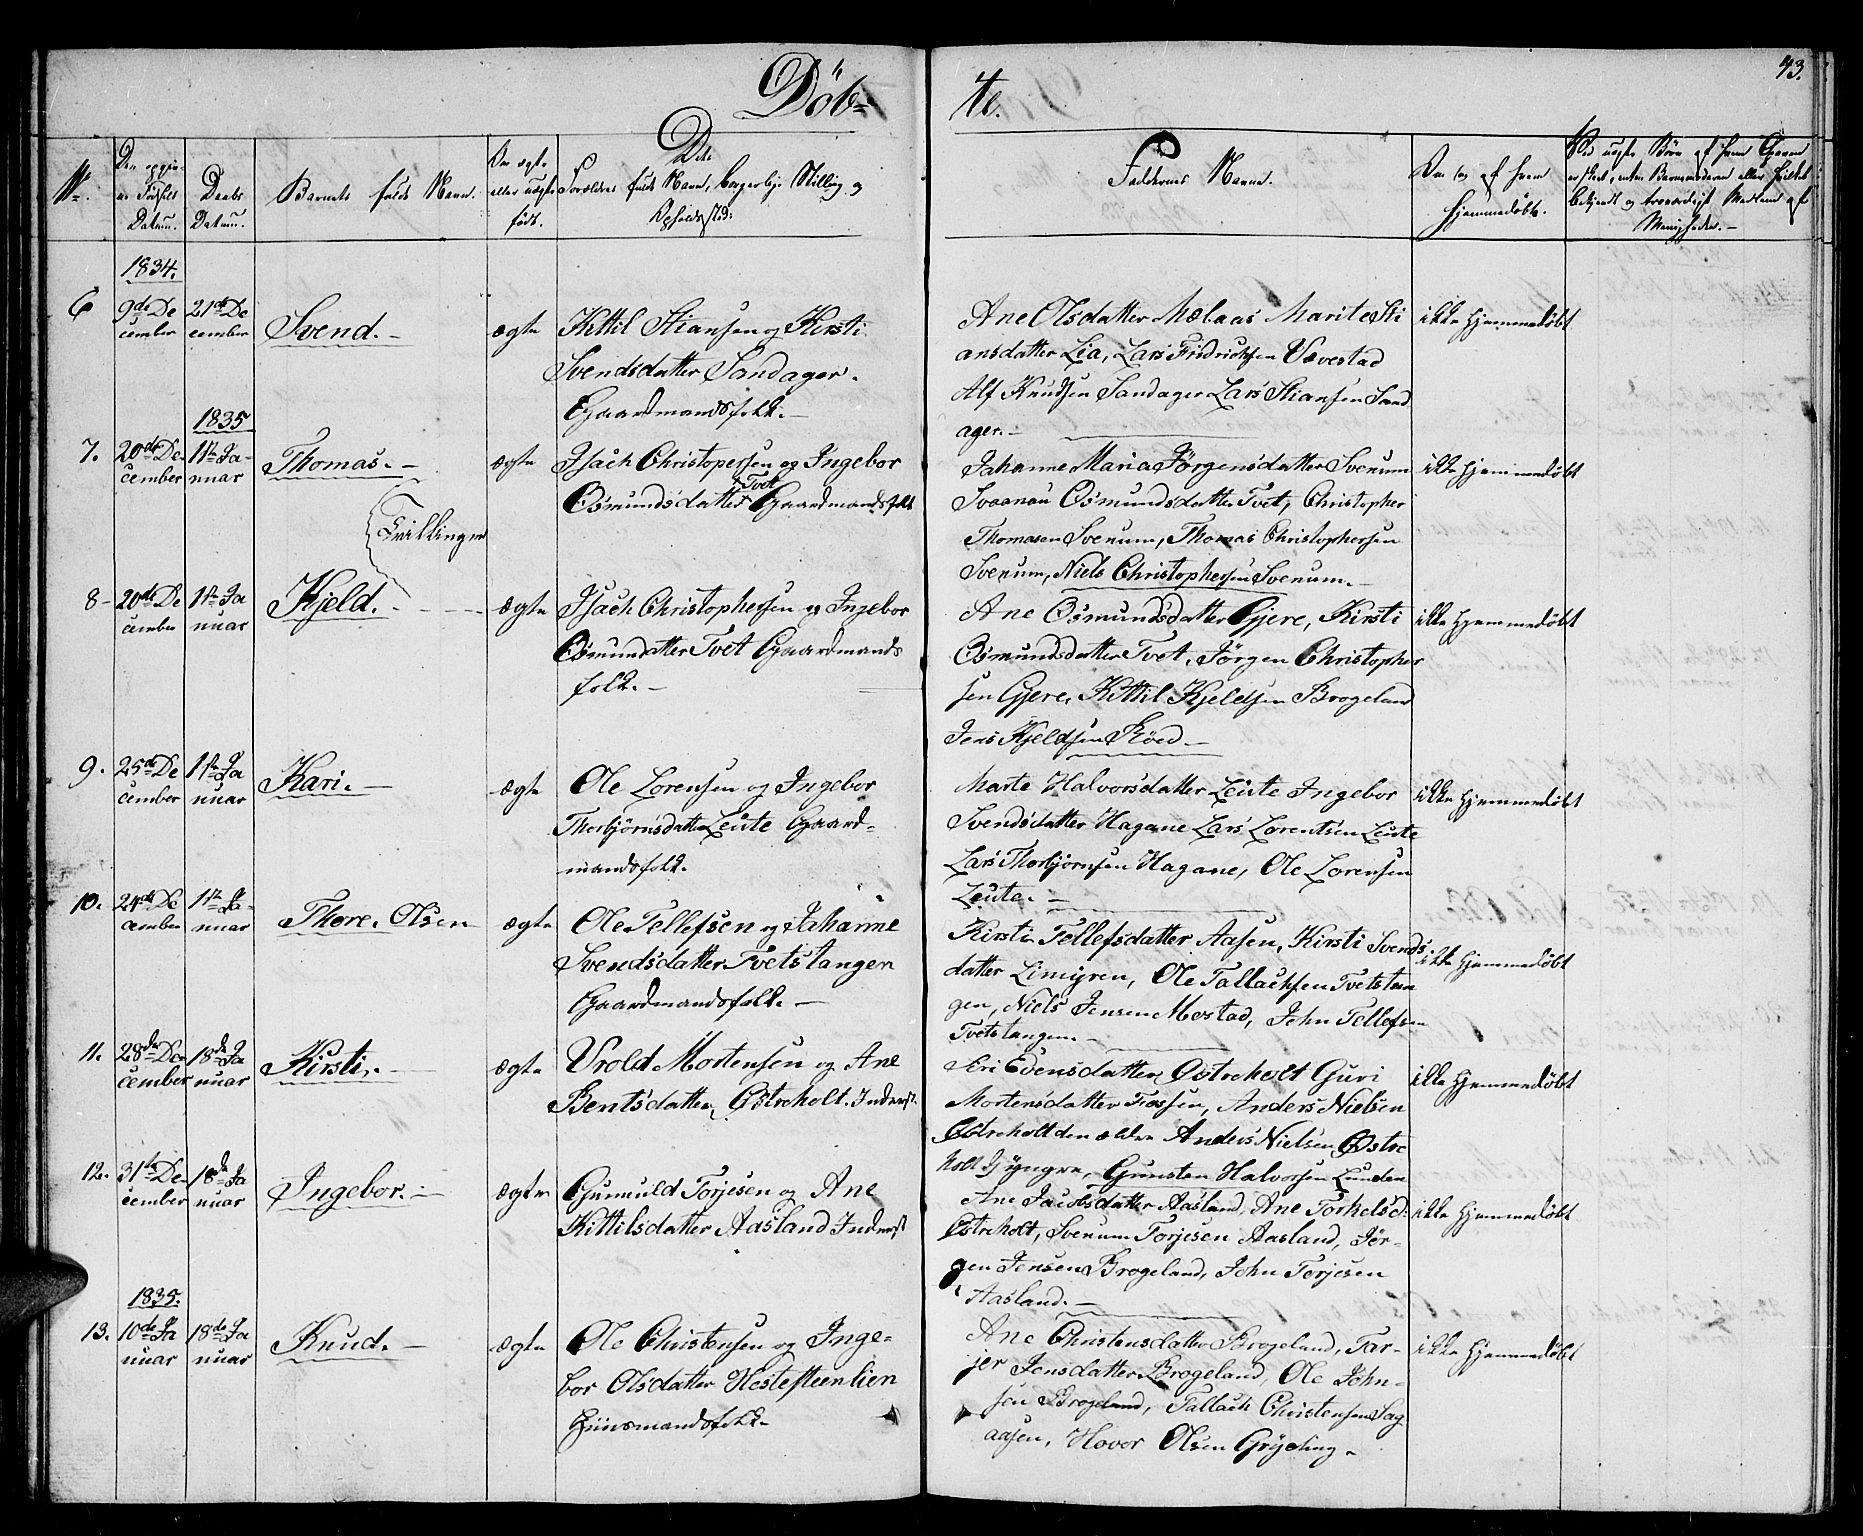 Döb=
te.
43.
No.
Den opgiv-
ne Födsels
Datum.
Daabs
Datum.
Barnets fulde Navn.
Om ægte
eller uægte
født.
De
Forældres fulde Navn, borgerlige Stilling og
Opholdssted.
Faddernes Navne.
Om og af hvem
hjemmedøbt.
Ved uægte Børn af hvem Opgaven
er skeet, enten Barnemoderen eller hvilket
bekjendt og troværdigt Medlem af
Menigheden.-
1834.
6
9de De
cember
21de De
cember
Svend.-
ægte
Kittil Stiansen og Kirsti
Svendsdatter Sandager.
Gaardmandsfolk.-
Ane Olsdatter Mælaas Marite Sti
ansdatter Lia, Lars Fridrichsen Vævestad
Alf Knudsen Sandager Lars Stiansen Sand
ager.-
ikke hjemmedøbt
1835
7.
20de De-
cember
1ste Ja-
nuar
Thomas.-
Tvillinger
ægte
Isach Christopersen og Ingebor
Osmundsdatter Tvet Gaardmandsfolk
Johanne Maria Jörgensdatter Svenum
Svaanau Osmundsdatter Tvet, Christopher
Thomasen Svenum, Thomas Christophersen
Svenum, Niels Christophersen Svenum.-
ikke hjemmedøbt
8-
20de De
cember
1ste Ja
nuar
Kjeld.-
ægte
Isach Christophersen og Ingebor
Osmundatter Tvet Gaardmands
folk.-
Ane Osmundsdatter Gjere, Kirsti
Osmundsdatter Tvet, Jörgen Christopher
sen Gjere, Kittil Kjeldsen Brogeland
Jens Kjeldsen Röed-
ikke hjemmedøbt
9.
25de De
cember
1ste Ja
nuar
Kari.-
ægte
Ole Lorensen og Ingebor
Thorbjörnsdatter Leite Gaard-
mandsfolk.
Marte Halvorsdatter Leite Ingebor
Svendsdatter Hagane Lars Lorentsen Leite
Lars Thorbjörnsen Hagane, Ole Lorensen
Leite.-
ikke hjemmedøbt
10.
24de De
cember
1ste Ja-
nuar
Thore Olsen
ægte
Ole Tellefsen og Johanne
Svendsdatter Tvetstangen
Gaardmandsfolk.-
Kirsti Tellefsdatter Aasen, Kirsti Svends
datter Limyren, Ole Tallachsen Tvetstan
gen, Niels Jensen Mostad, John Tellefsen
Tvetstangen.
ikke hjemmedøbt
11.
28de De
cember
18de Ja
nuar
Kirsti.-
ægte
Vrold Mortensen og Ane
Bentsdatter, Östreholt. Inderst.
Siri Edensdatter Östreholt Guri
Mortensdatter Fossen, Anders Nielsen
Östreholt den ældre Anders Nielsen Östre
holt yngre, Gunsten Halvorsen Lunden
ikke hjemmedøbt
12.
31te De
cember
18de Ja
nuar
Ingebor.-
ægte
Gunnuld Torjesen og Ane
Kittilsdatter Aasland Inderst
Ane Jacobsdatter Aasland, Ane Torkelsd:
Östreholt, Svenum Torjesen Aasland, Jör-
gen Jensen Brogeland, John Torjesen
Aasland.-
ikke hjemmedøbt
1835.
13.
10de Ja
nuar
18de Ja
nuar
Knud.-
ægte
Ole Christensen og Inge-
bor Olsdatter Hestesteenlien
Huusmandsfolk-
Ane Christensdatter Brogeland, Tar-
jer Jensdatter Brogeland, Ole John-
sen Brogeland, Tallach Christensen Sag
aasen, Hovor Olsen Gryting.
ikke hjemmedøbt